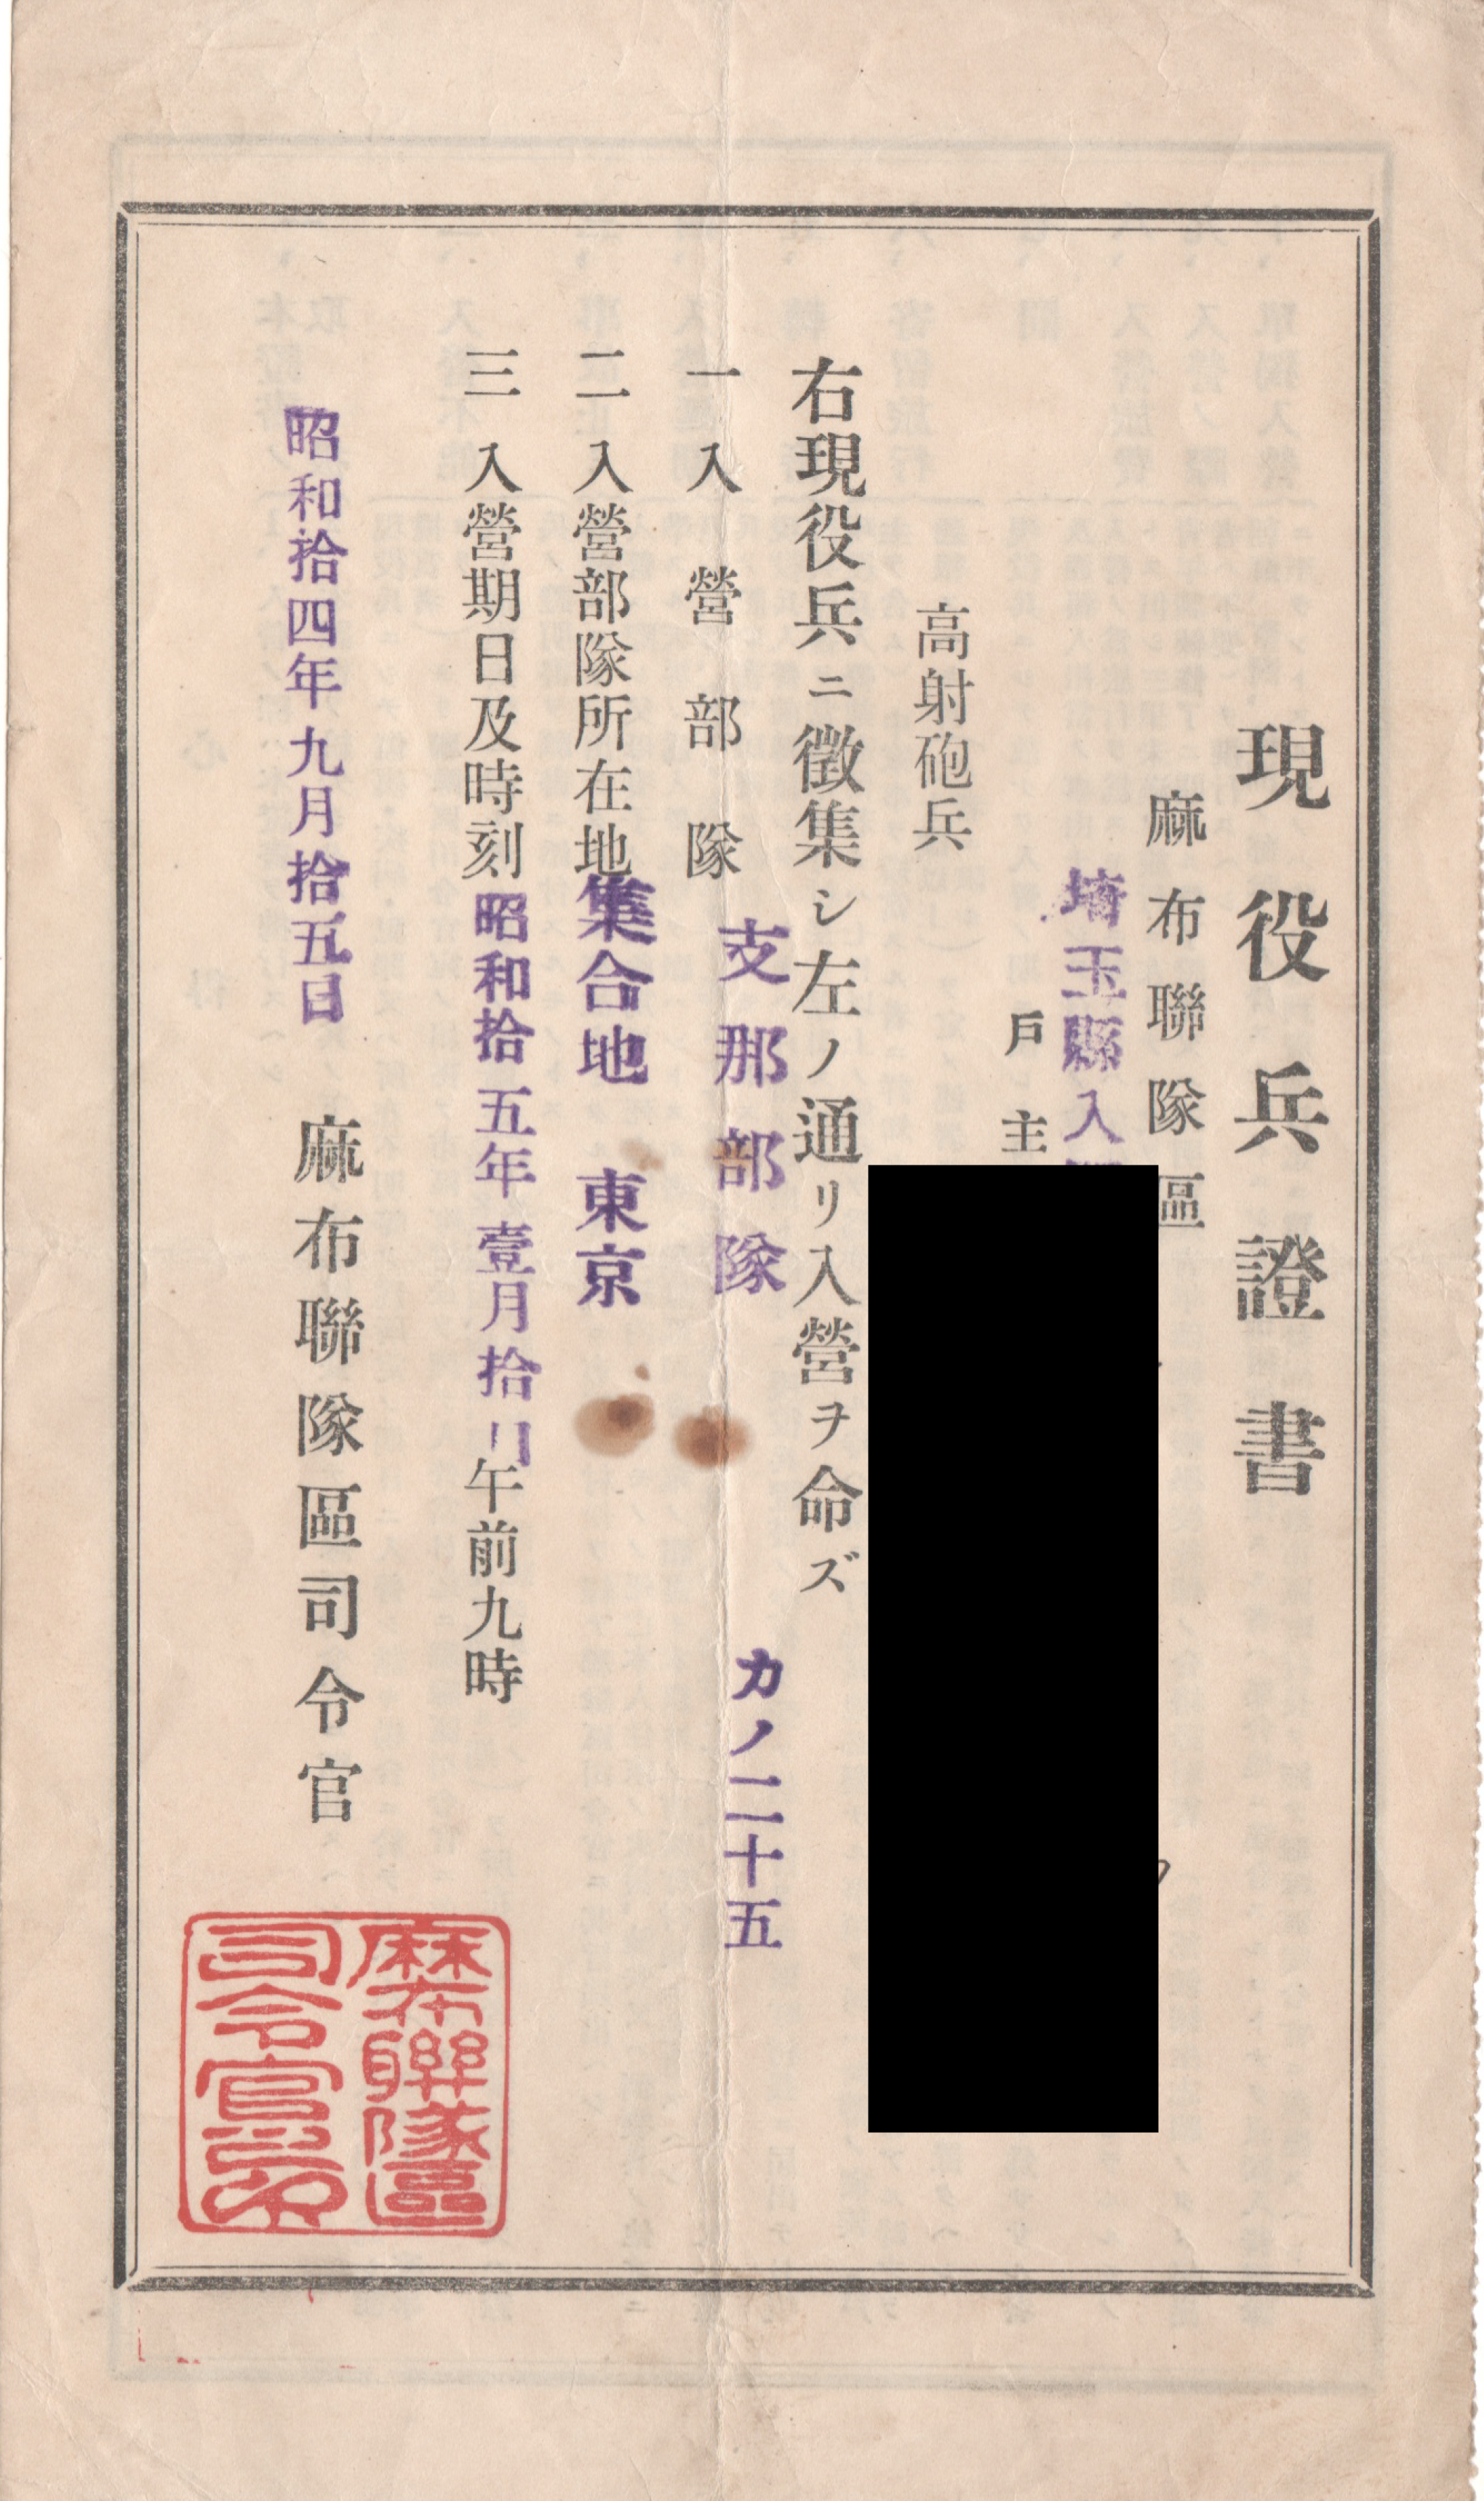 現役兵證書
麻布聯隊區
埼玉縣入
戶主
高射砲兵
右現役兵ニ徴集シ左ノ通リ入營ヲ命ズ
一 入營部隊 支那部隊 カノ二十五
二 入營部隊所在地 集合地 東京
三 入營期日及時刻 昭和拾五年壹月拾日午前九時
昭和拾四年九月拾五日 麻布聯隊區司令官
麻布聯隊區
司令官印